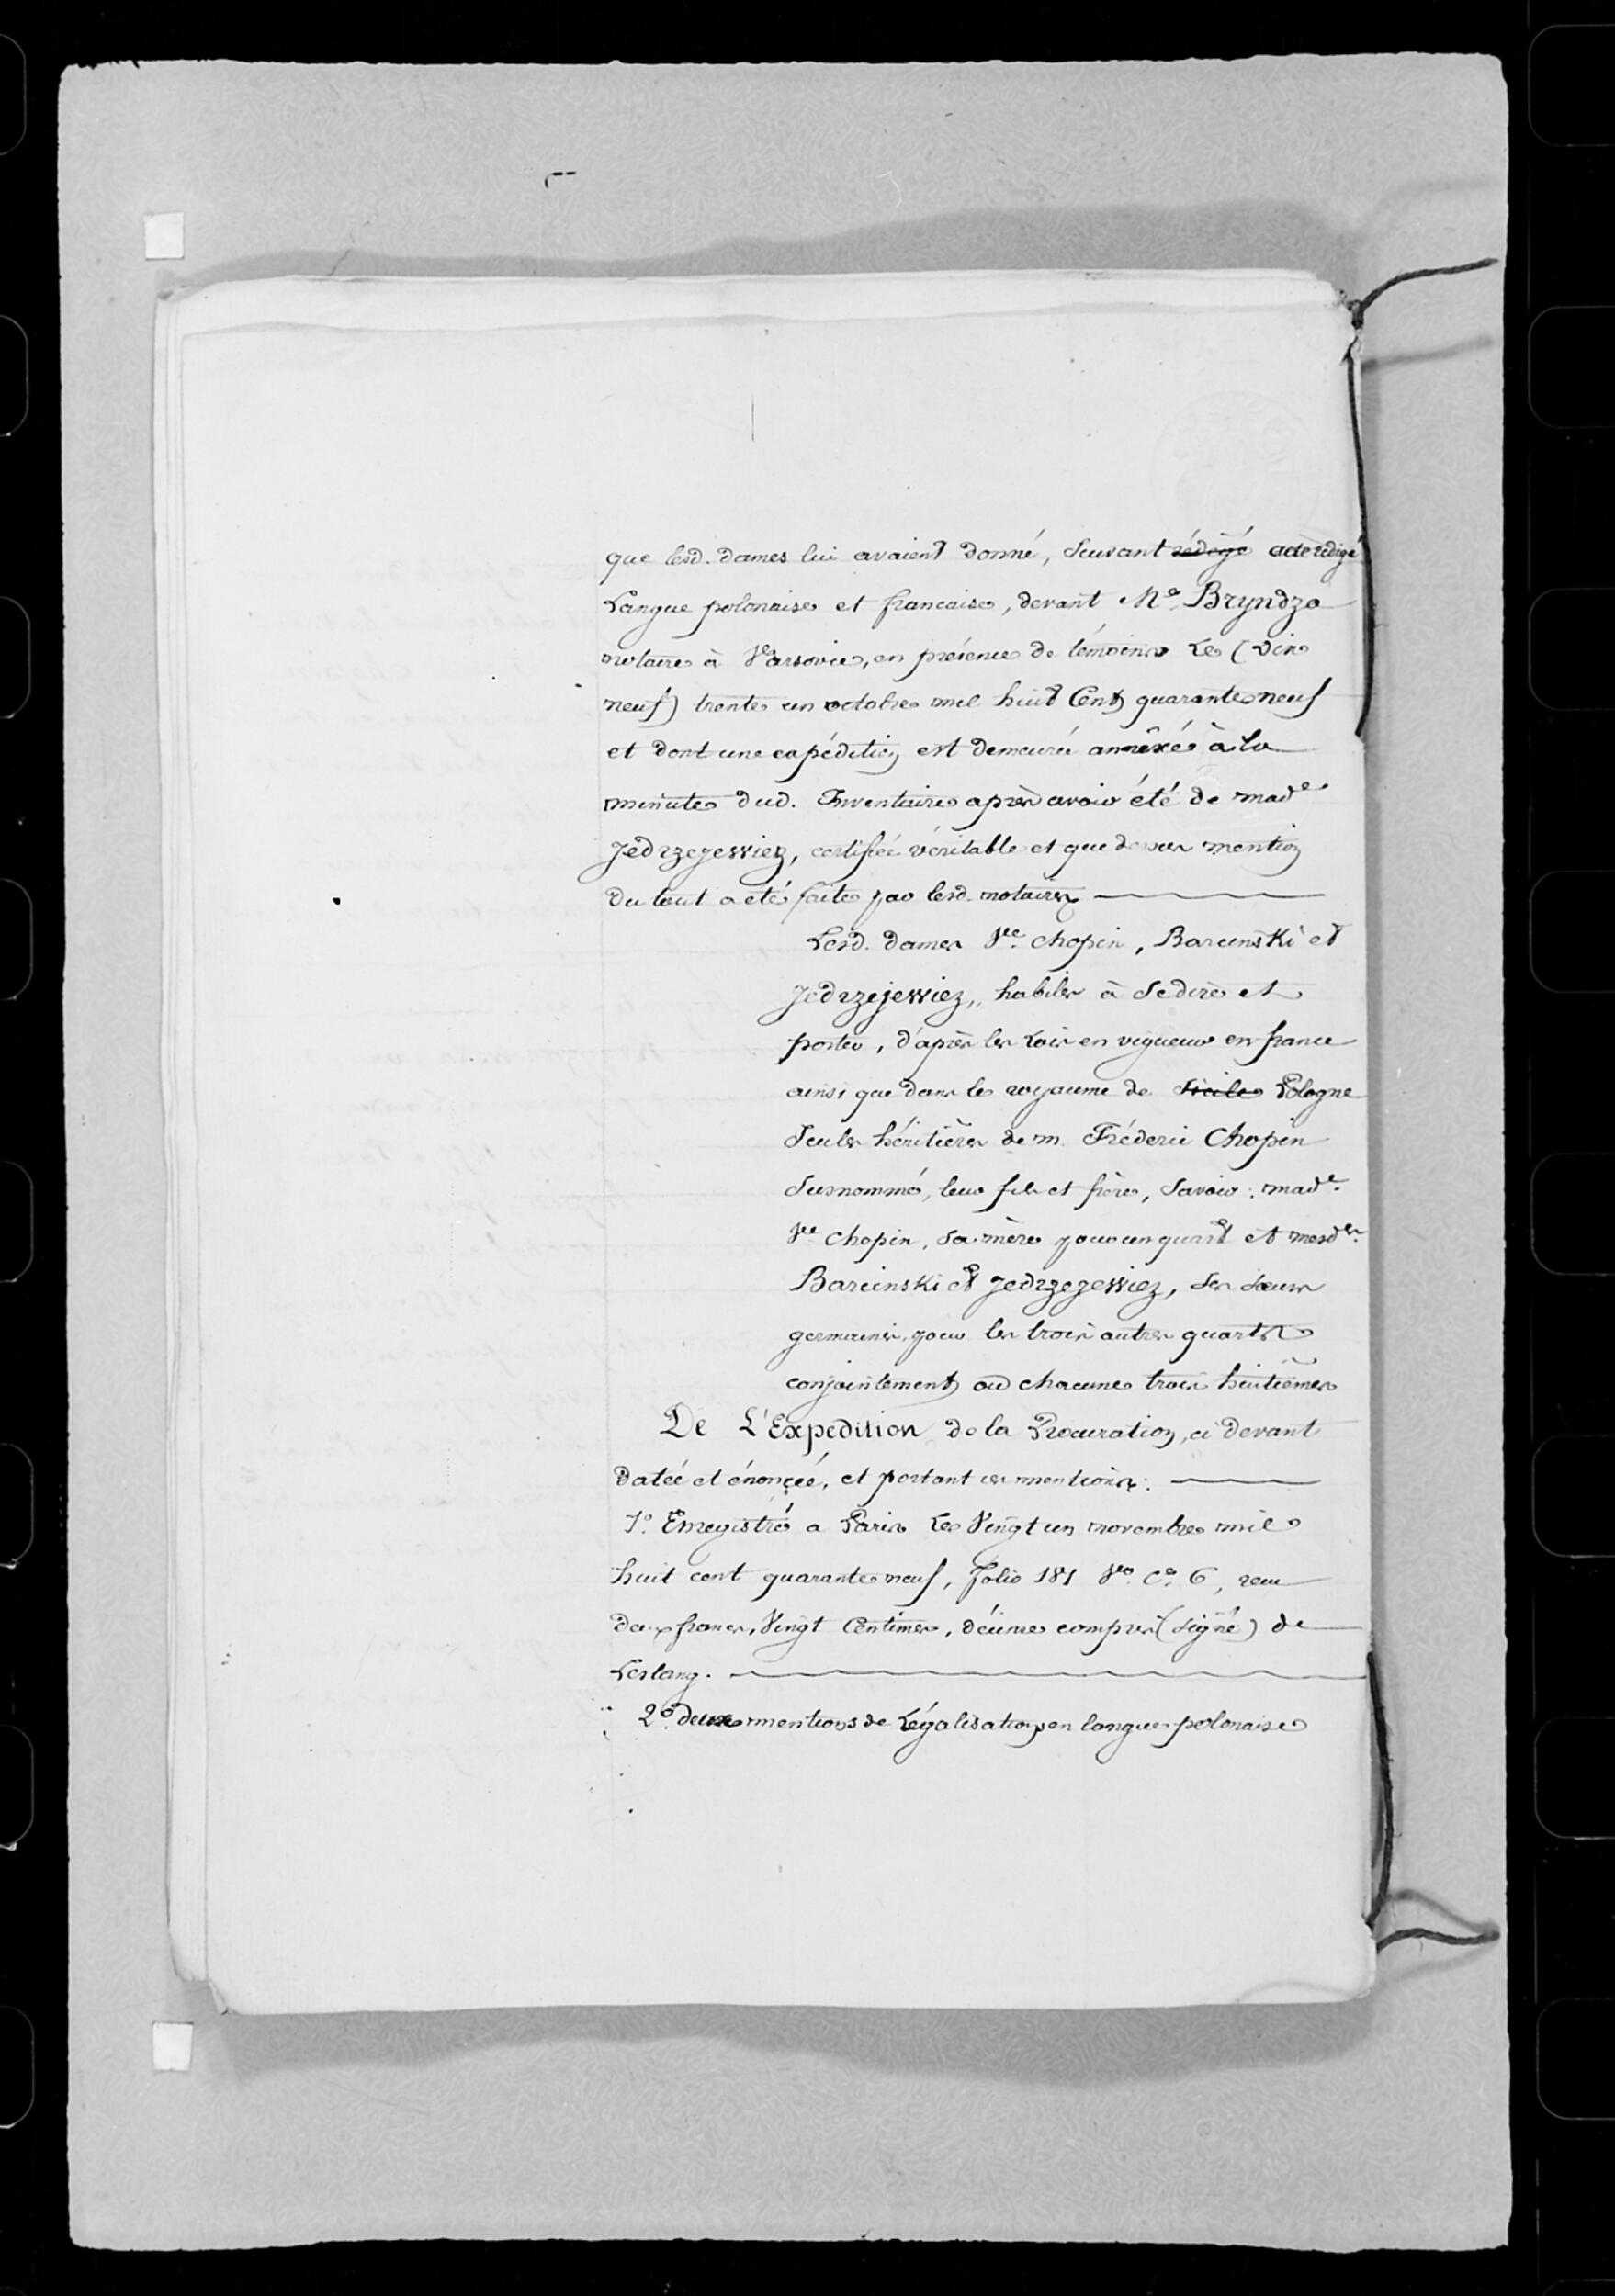 que lesd. dames lui avaient donné, suivant rédigé acte rédigé
Langue polonaise et francaise, devant Me. Bryndza
notaire à Varsovie, en présence de témoins Le (dix
neuf) trente un octobre mil huit Cent quarante neuf
et dont une expédition est demeurée annéxée à la
minute dud. Inventaire après avoir été de made
Jedrzejewiez, certifiée véritable et que dessus mention
du tout a été faite par lesd. notaires
Lesd. dames Vve. Chopin, Barcinski et
Jedrzejewiez, habiles à se dire et
porter, d'après les Lois en vigueur en france
ainsi que dans le royaume de Sicile Pologne
Seules héritières de m. Fréderic Chopin
susnommé, leur fils et frère, Savoir : made.
Vve Chopin, sa mère pour un quart et mesdes.
Barcinski et Jedrzejewiez, ses sœurs
germaines, pour les trois autres quarts
conjointement ou chacune trois huitièmes
De L'Expedition de la Procuration, ci devant
datée et énoncée, et portant ces mentions :
1o. Enregistré a Paris Le Vingt un novembre mil
huit cent quarante neuf, folio 181 Vo. Ce. 6, reçu
deux francs, Vingt Centimes, décime compris (signé) de
Lestang.
2o. deux mentions de Légalisation en langue polonaise